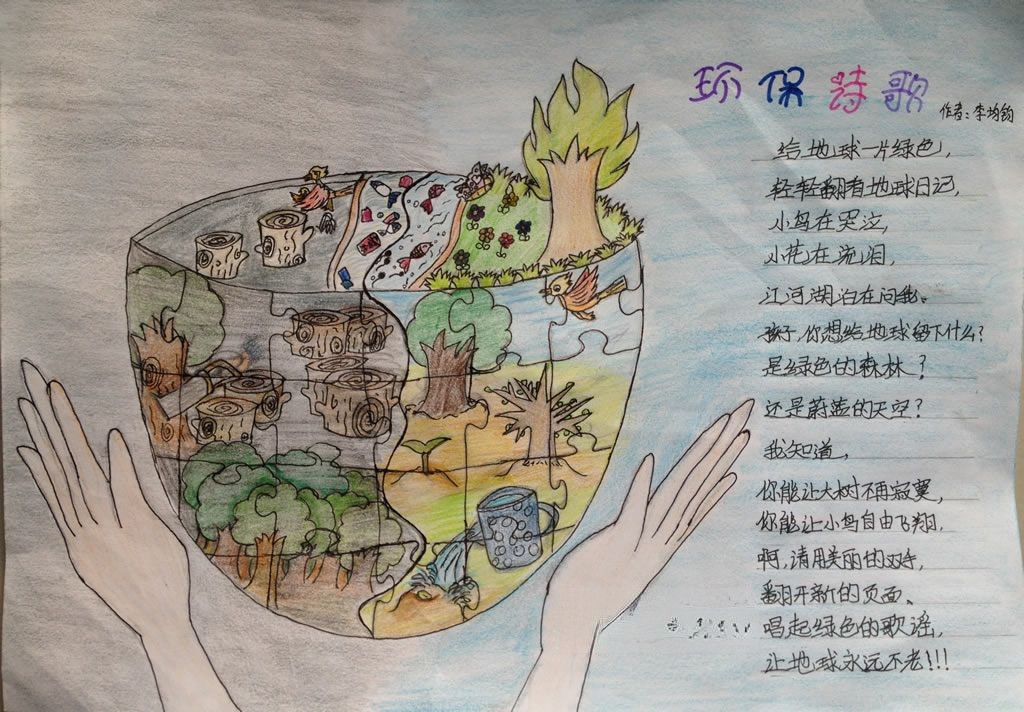 环保诗歌
作者:李均钧
给地球一片绿色,
轻轻翻看地球日记,
小鸟在哭泣,
小花在流泪,
江河湖泊在问我、
孩子,你想给地球留下什么?
是绿色的森林?
还是蔚蓝的天空?
我知道,
你能让大树不再寂寞,
你能让小鸟自由飞翔,
啊,请用美丽的双手,
翻开新的页面、
唱起绿色的歌谣,
让地球永远不老!!!